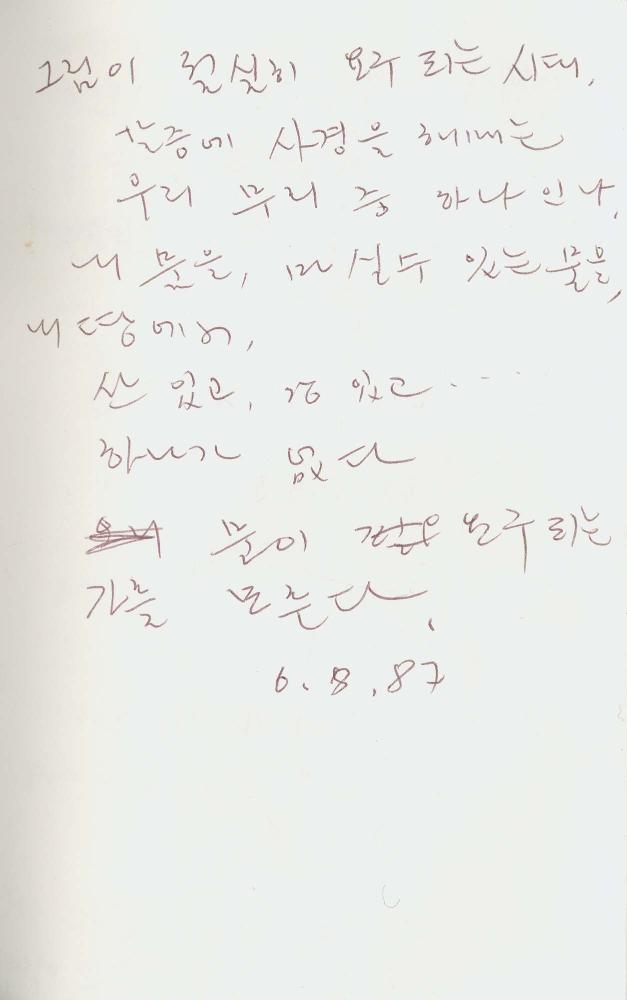 그림이 절실히 요구 되는 시대,
갈증에 사경을 헤매는
우리 무리 중 하나 인 나,
내 물을, 마실 수 있는 물을,
내 땅에서,
산 있고, 강 있고 . . . .
하나가 없다
물이 요구 되는
가를 모른다.
6.8.87